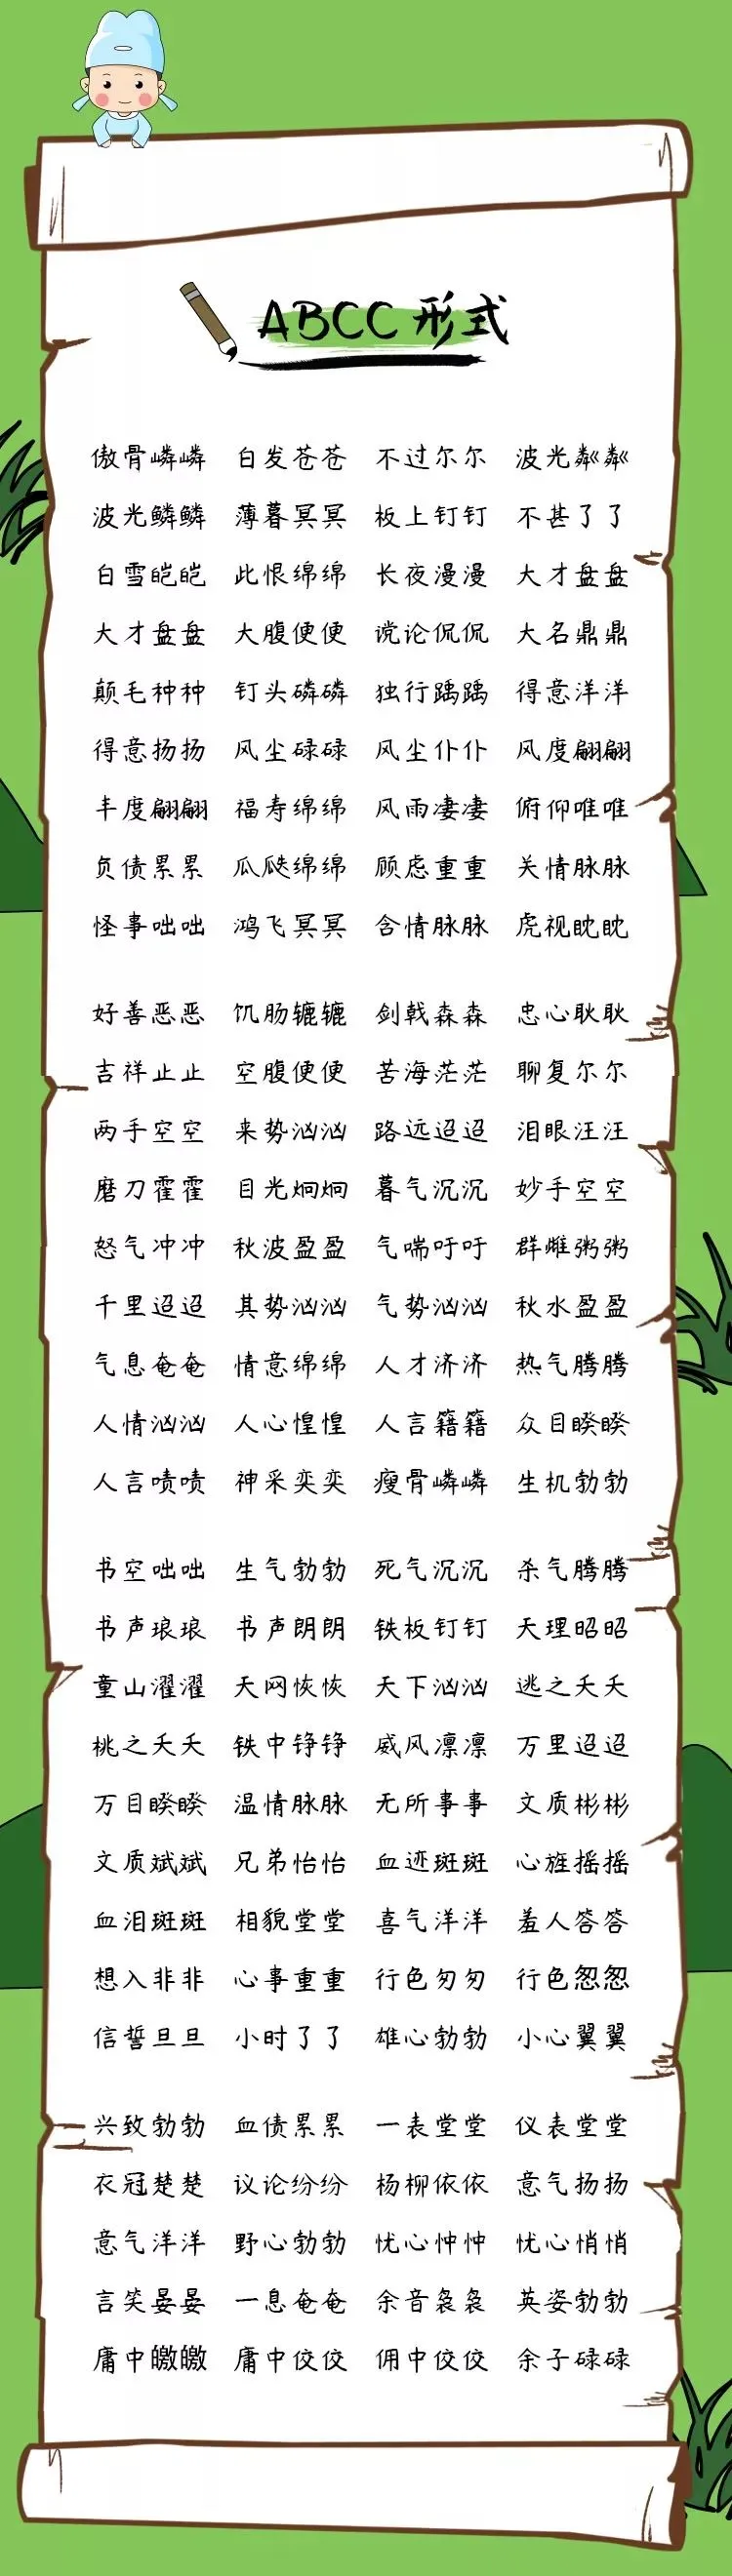 ABCC形式
傲骨嶙嶙 白发苍苍 不过尔尔 波光粼粼
波光鳞鳞 薄暮冥冥 板上钉钉 不甚了了
白雪皑皑 此恨绵绵 长夜漫漫 大才盘盘
大才盘盘 大腹便便 谠论侃侃 大名鼎鼎
颠毛种种 钉头磷磷 独行踽踽 得意洋洋
得意扬扬 风尘碌碌 风尘仆仆 风度翩翩
丰度翩翩 福寿绵绵 风雨凄凄 俯仰唯唯
负债累累 瓜瓞绵绵 顾虑重重 关情脉脉
怪事咄咄 鸿飞冥冥 含情脉脉 虎视眈眈
好善恶恶 饥肠辘辘 剑戟森森 忠心耿耿
吉祥止止 空腹便便 苦海茫茫 聊复尔尔
两手空空 来势汹汹 路远迢迢 泪眼汪汪
磨刀霍霍 目光炯炯 暮气沉沉 妙手空空
怒气冲冲 秋波盈盈 气喘吁吁 群雌粥粥
千里迢迢 其势汹汹 气势汹汹 秋水盈盈
气息奄奄 情意绵绵 人才济济 热气腾腾
人情汹汹 人心惶惶 人言籍籍 众目睽睽
人言啧啧 神采奕奕 瘦骨嶙嶙 生机勃勃
书空咄咄 生气勃勃 死气沉沉 杀气腾腾
书声琅琅 书声朗朗 铁板钉钉 天理昭昭
童山濯濯 天网恢恢 天下汹汹 逃之夭夭
桃之夭夭 铁中铮铮 威风凛凛 万里迢迢
万目睽睽 温情脉脉 无所事事 文质彬彬
文质斌斌 兄弟怡怡 血迹斑斑 心旌摇摇
血泪斑斑 相貌堂堂 喜气洋洋 羞人答答
想入非非 心事重重 行色匆匆 行色怱怱
信誓旦旦 小时了了 雄心勃勃 小心翼翼
兴致勃勃 血债累累 一表堂堂 仪表堂堂
衣冠楚楚 议论纷纷 杨柳依依 意气扬扬
意气洋洋 野心勃勃 忧心忡忡 忧心悄悄
言笑晏晏 一息奄奄 余音袅袅 英姿勃勃
庸中皦皦 庸中佼佼 佣中佼佼 余子碌碌